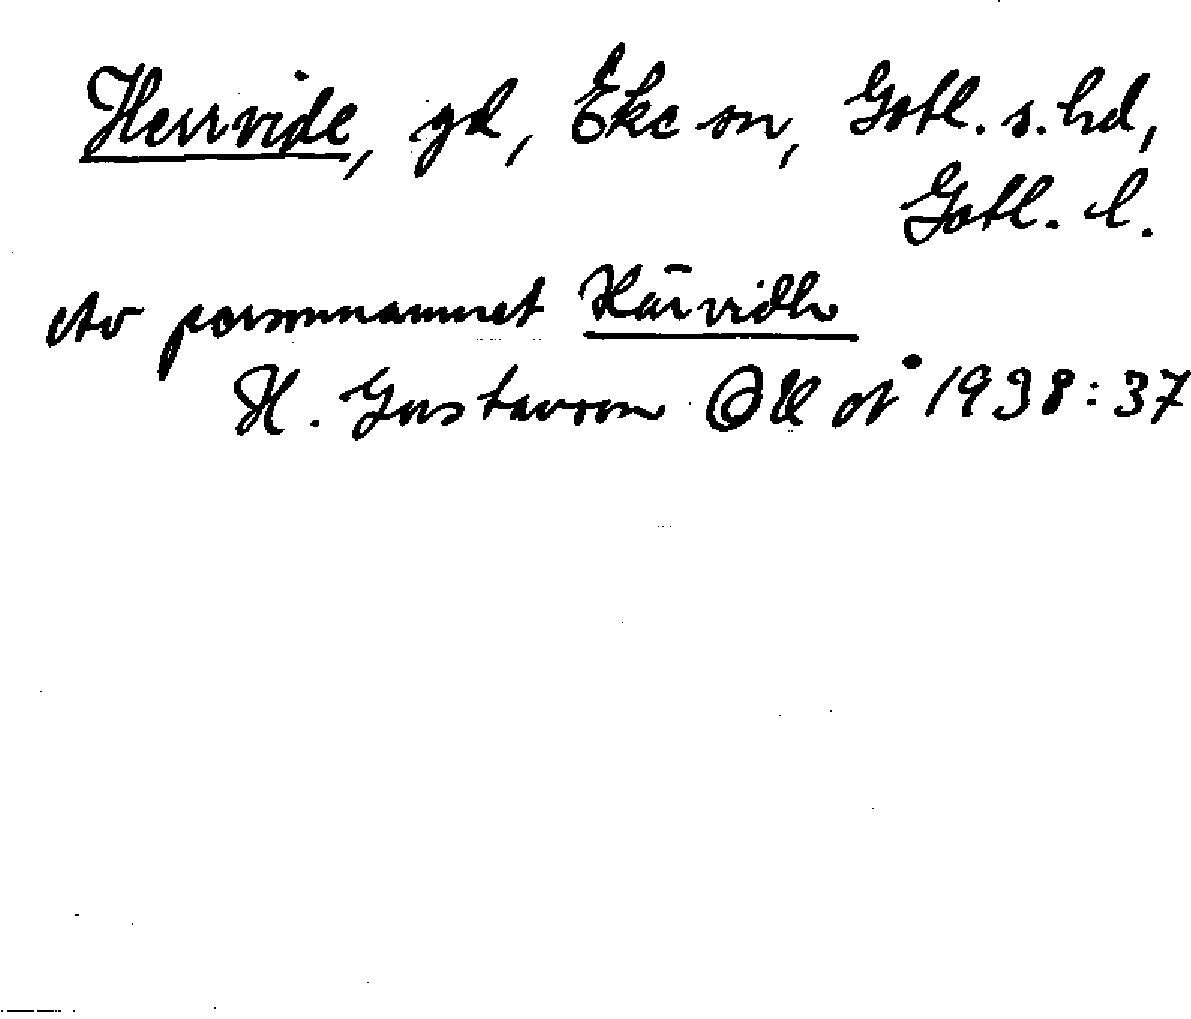 Herrvide, gd, Eke sn, Gotl. s. hd,
Gotl. l.
Av personnamnet Härvidh
H. Gustavson 1938:37